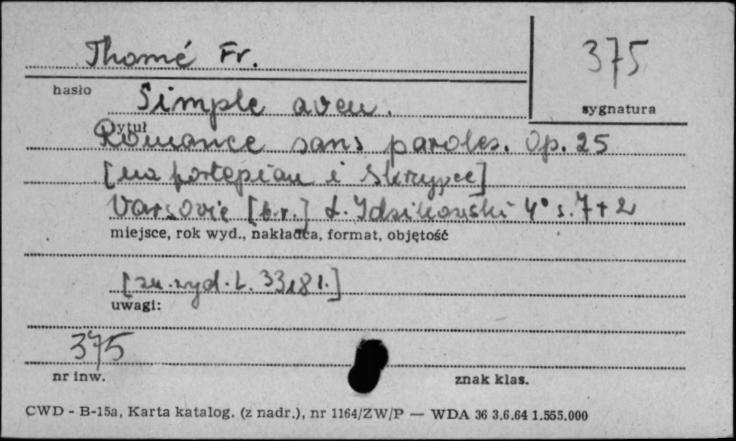 Thomé Fr.
375
hasło
sygnatura
Simple aveu.
tytuł
Romance sans paroles. Op. 25
[na fortepian i skrzypce]
Varsovie [b.r.] L. Idzikowski 4° s. 7+2
miejsce, rok wyd., nakładca, format, objętość
[zn. wyd. L. 3318 I.]
uwagi:
375
nr inw.
znak klas.
CWD - B-15a, Karta katalog. (z nadr.), nr 1164/ZW/P — WDA 36 3.6.64 1.555.000